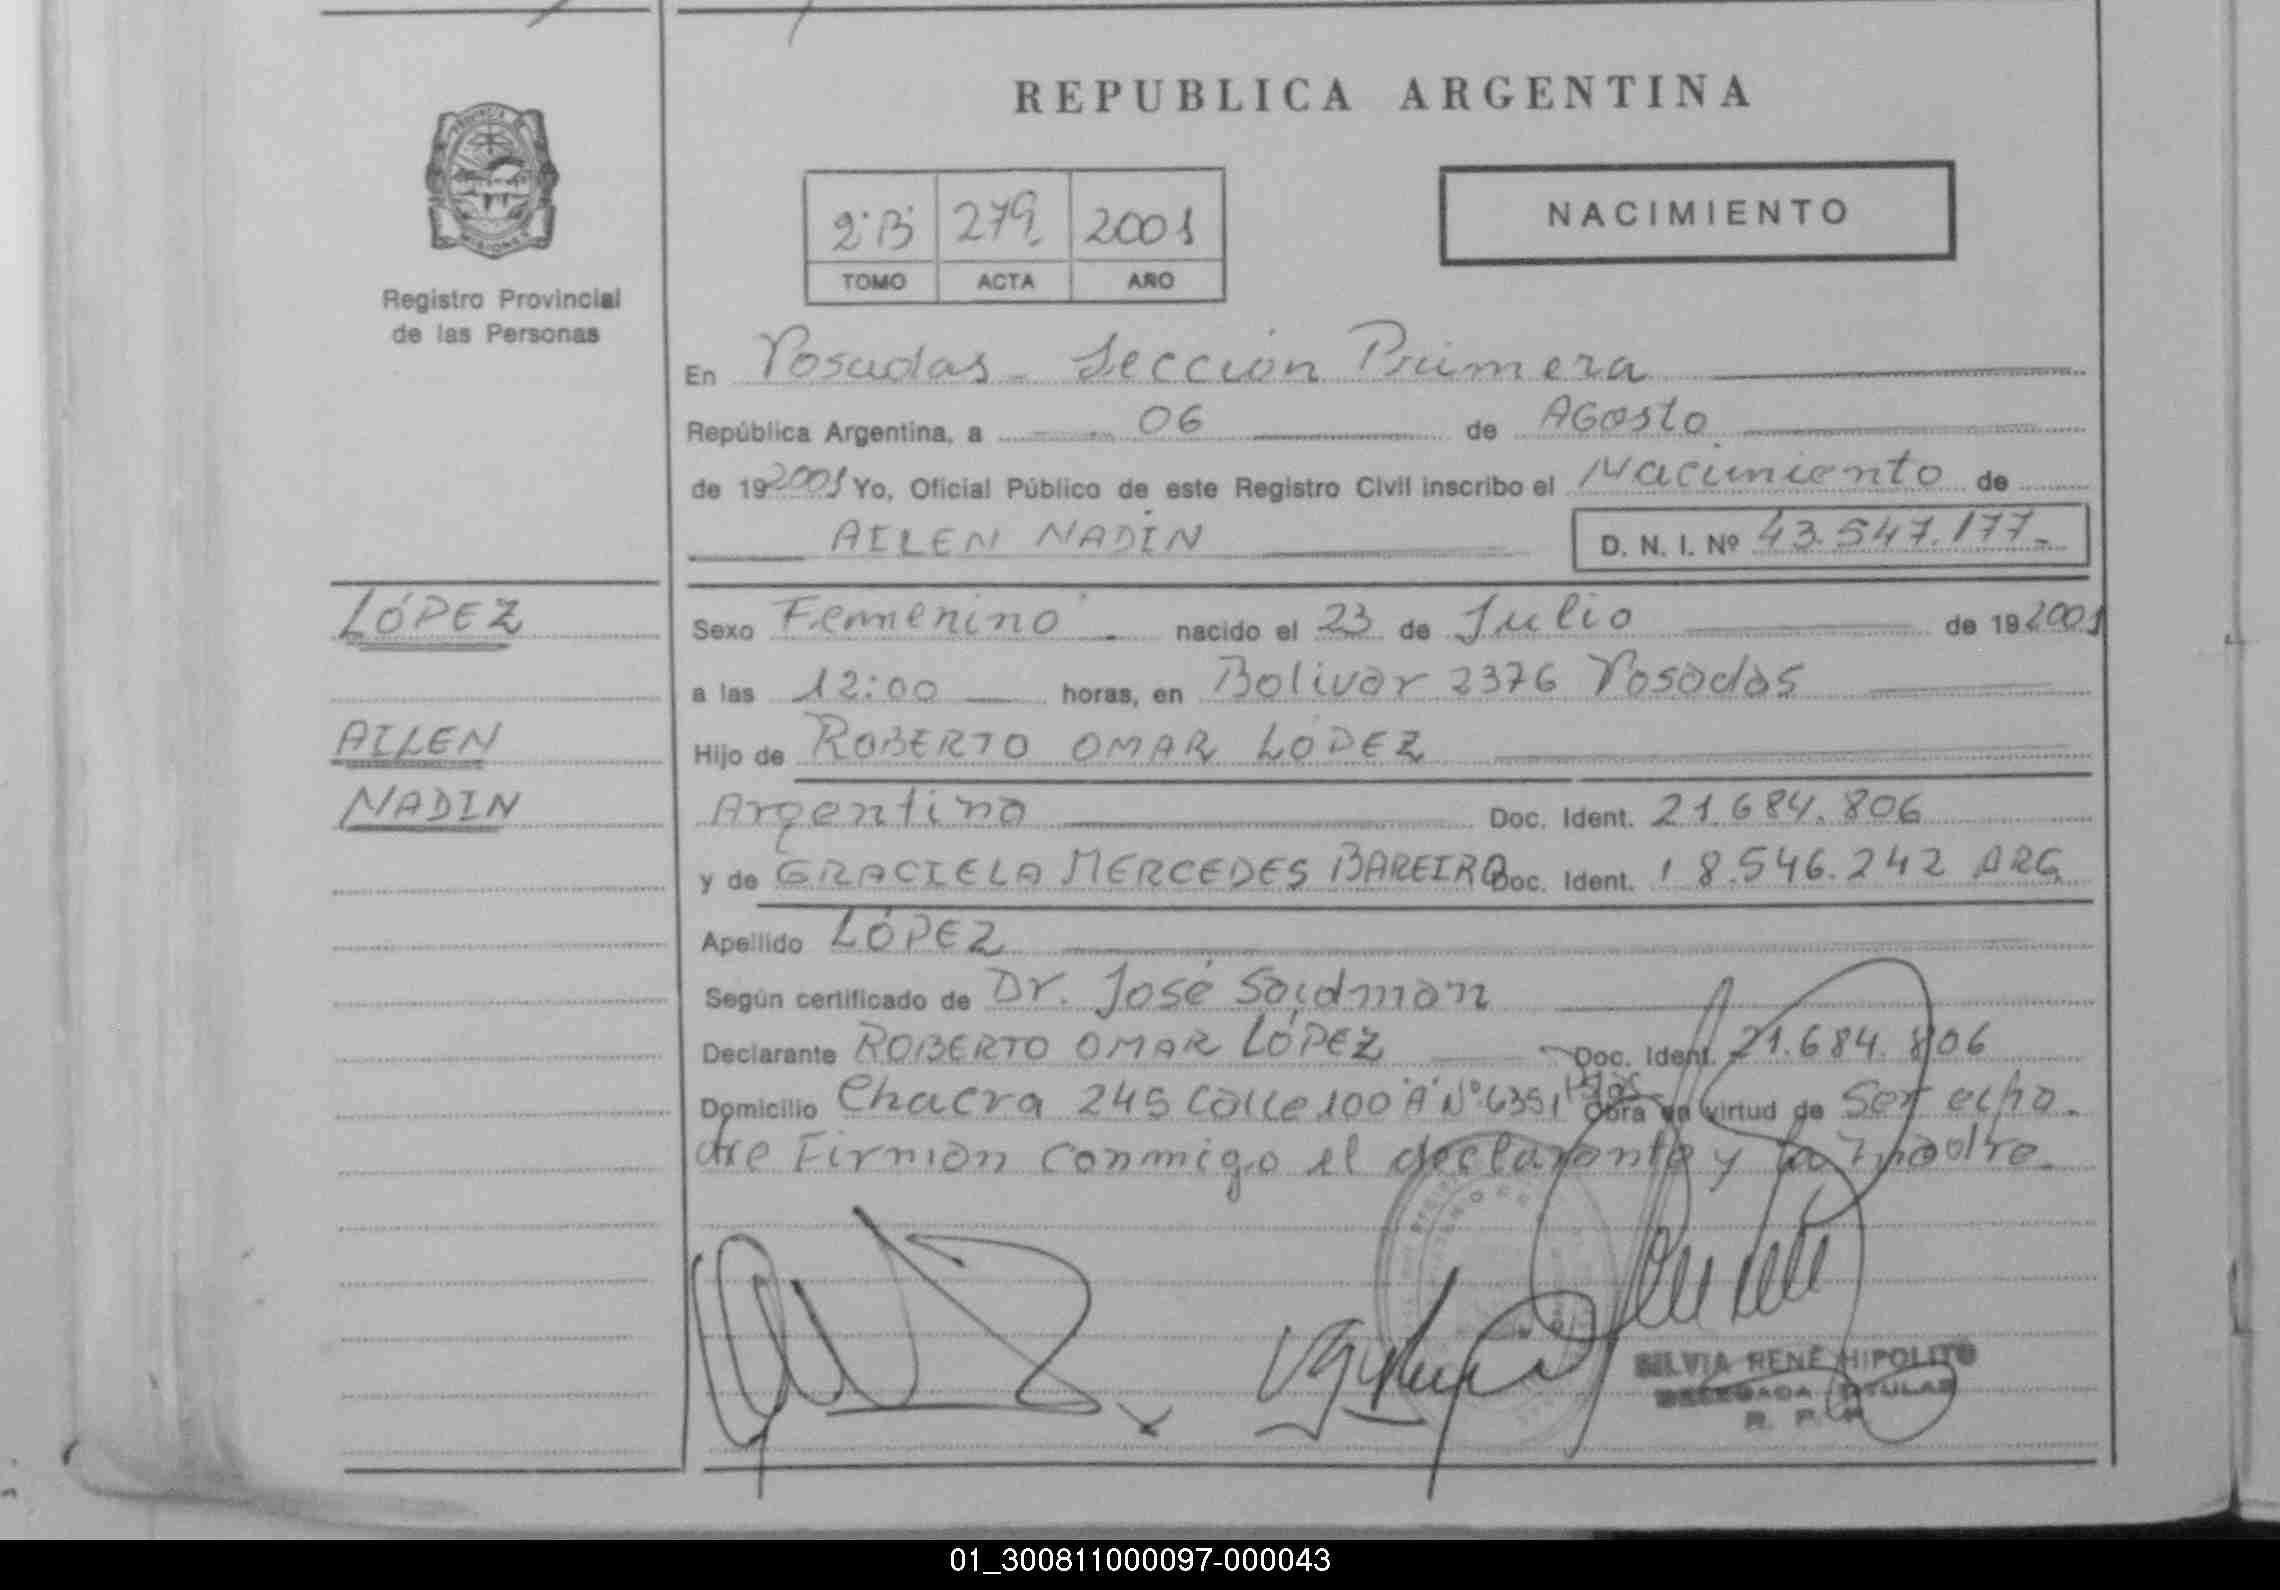 REPUBLICA ARGENTINA
2ºBº 279 2001
TOMO ACTA AÑO
NACIMIENTO
PROVINCIA DE MISIONES
Registro Provincial
de las Personas
En Posadas - Sección Primera
República Argentina, a 06 de Agosto
de 192001 Yo, Oficial Público de este Registro Civil inscribo el Nacimiento de
AILEN NADIN D. N. I. Nº 43.547.177.-
LÓPEZ
AILEN
NADIN
Sexo Femenino nacido el 23 de Julio de 192001
a las 12:00 horas, en Bolivar 2376 Posadas
Hijo de ROBERTO OMAR LÓPEZ
Argentino Doc. Ident. 21.684.806
y de GRACIELA MERCEDES BAREIRO Doc. Ident. 18.546.242 ARG
Apellido LÓPEZ
Según certificado de Dr. José Saidman
Declarante ROBERTO OMAR LÓPEZ Doc. Ident. 21.684.806
Domicilio Chacra 245 Calle 100 "A" Nº 6351 Pdas Obra en virtud de Ser el pa-
dre Firman conmigo el declarante y la madre.
SILVIA RENÉ HIPOLITO
DELEGADA TITULAR
R. P. P.
01_300811000097-000043